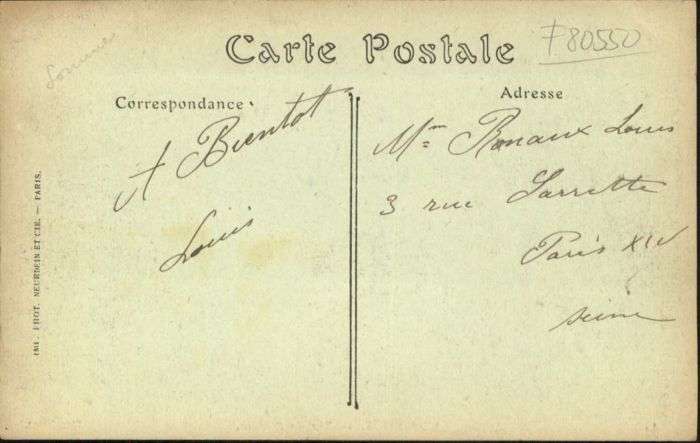 Carte Postale
F80550
Correspondance
A Bientot
Louis
Adresse
Mme Louis
3 rue Sarrette
Paris XIV
seine
IMP. PHOT. NEURDEIN ET CIE. — PARIS.